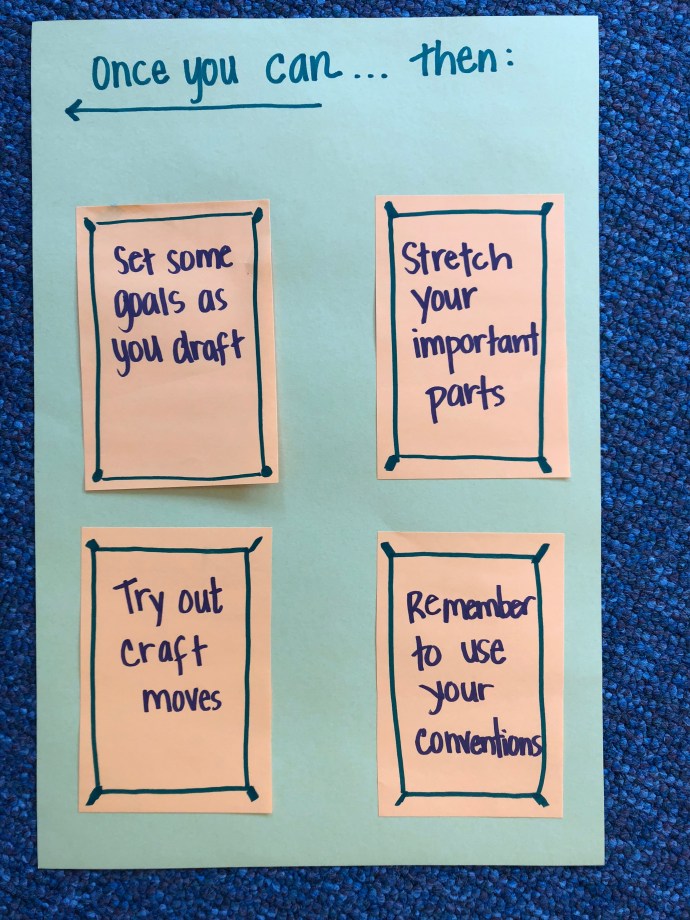 Once you can... then:
Set some
goals as
you draft
Stretch
your
important
parts
Try out
craft
moves
Remember
to use
your
conventions